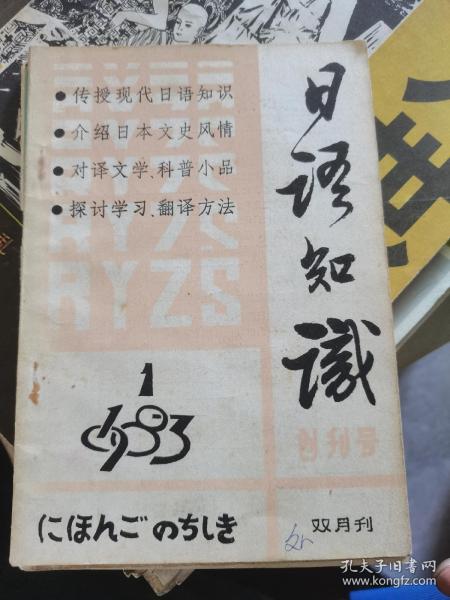 ● 传授现代日语知识
● 介绍日本文史风情
● 对译文学、科普小品
● 探讨学习、翻译方法
RYZS
日语知识
创刊号
1
1983
にほんごのちしき
双月刊
孔夫子旧书网
www.kongfz.com